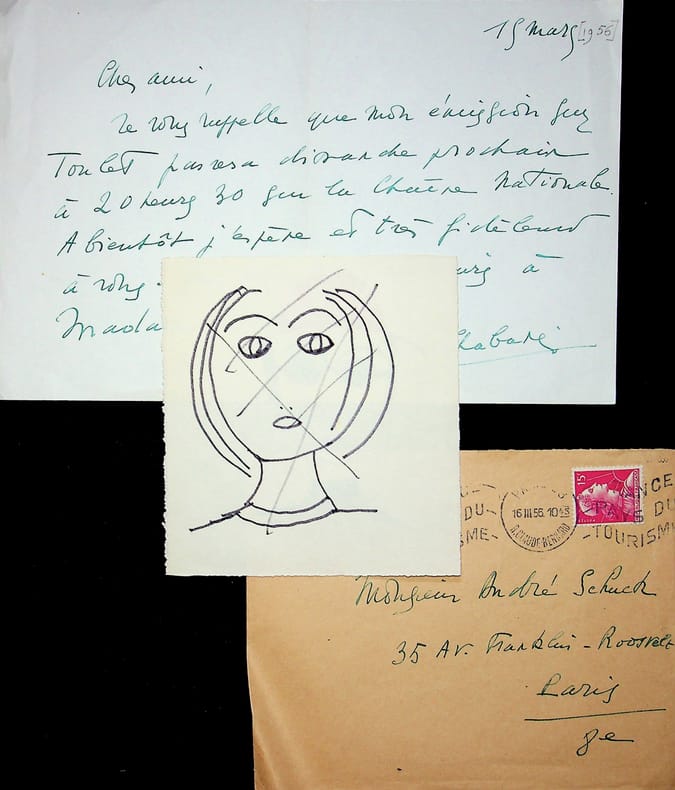 15 mars [1956]
Cher ami,
Je vous rappelle que mon émission sur
Toulet passera dimanche prochain
à 20 heures 30 sur la Chaîne Nationale.
A bientôt j'espère et très fidèlement
à vous. à
Mada
15
16 III 56. 10H
R. CLAUDE-BERNARD
FRANCE
DU
TOURISME
DU
SME
Monsieur André Schuck
35 Av. Franklin-Roosvelt
Paris
8e